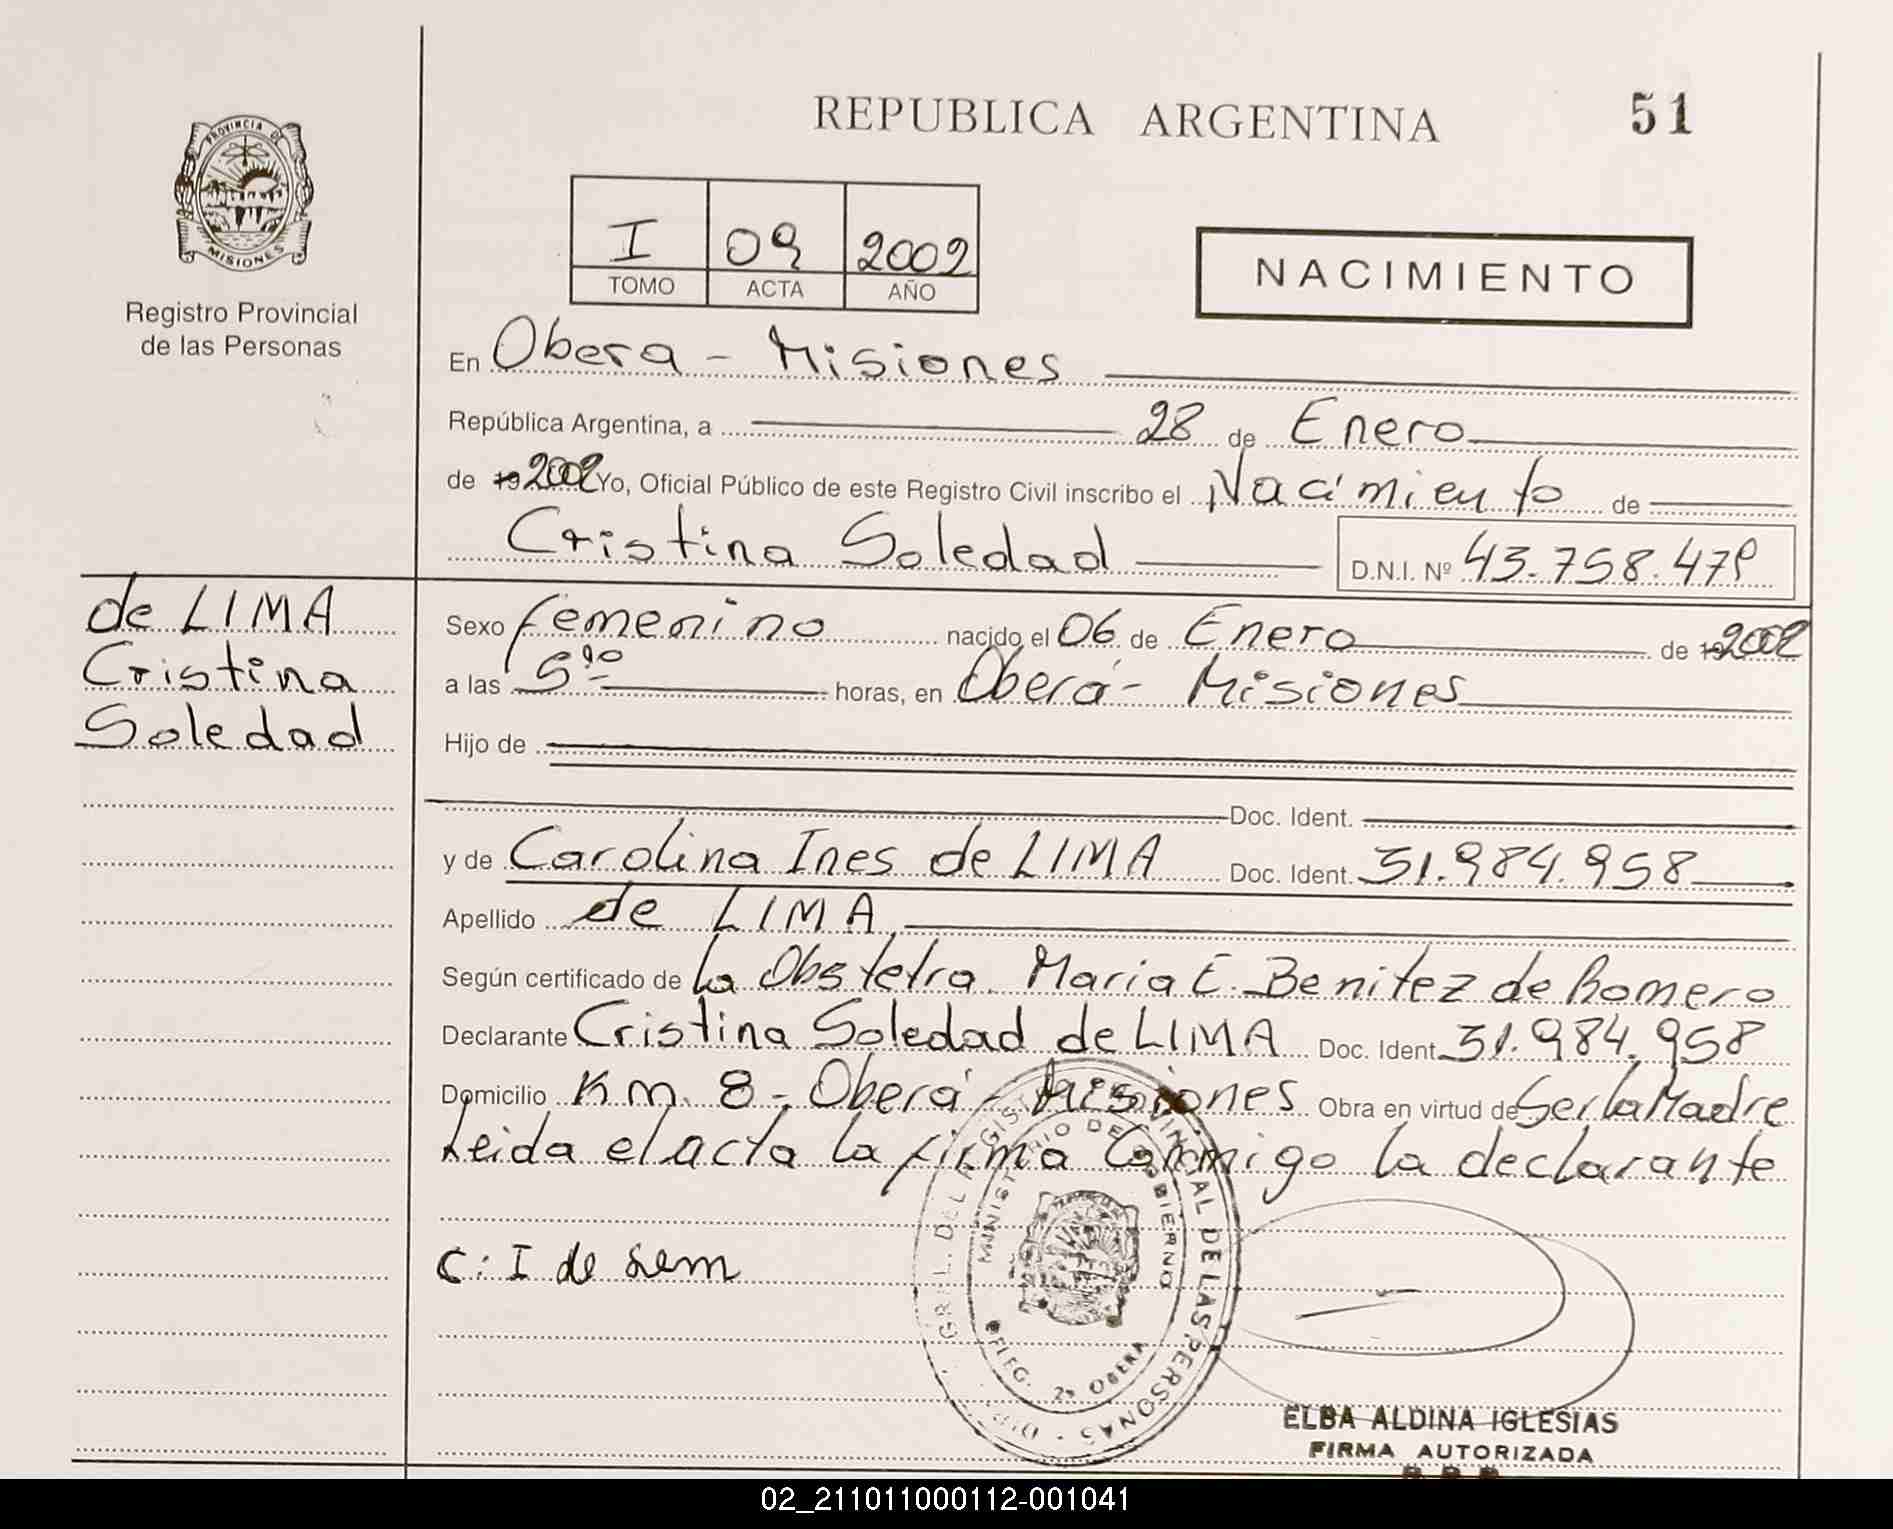 REPUBLICA ARGENTINA 51
PROVINCIA DE
MISIONES
Registro Provincial
de las Personas
I 09 2002
TOMO ACTA AÑO
NACIMIENTO
En Obera - Misiones
República Argentina, a 28 de Enero
de 19 2002 Yo, Oficial Público de este Registro Civil inscribo el Nacimiento de
Cristina Soledad D.N.I. Nº 43.758.479
de LIMA
Cristina
Soledad
Sexo femenino nacido el 06 de Enero de 19 2002
a las 5 10 horas, en Oberá - Misiones
Hijo de
Doc. Ident.
y de Carolina Ines de LIMA Doc. Ident. 31.984.958
Apellido de LIMA
Según certificado de la Obstetra Maria E. Benitez de Romero
Declarante Cristina Soledad de LIMA Doc. Ident. 31.984.958
Domicilio Km. 8 - Oberá - Misiones Obra en virtud de Ser la Madre
Leida el acta la firma Conmigo la declarante
C: I de
GRAL. DEL REGISTRO PROVINCIAL DE LAS PERSONAS - DIR.
MINISTERIO DE GOBIERNO
DELEG. 2ª OBERA
ELBA ALDINA IGLESIAS
FIRMA AUTORIZADA
02_211011000112-001041